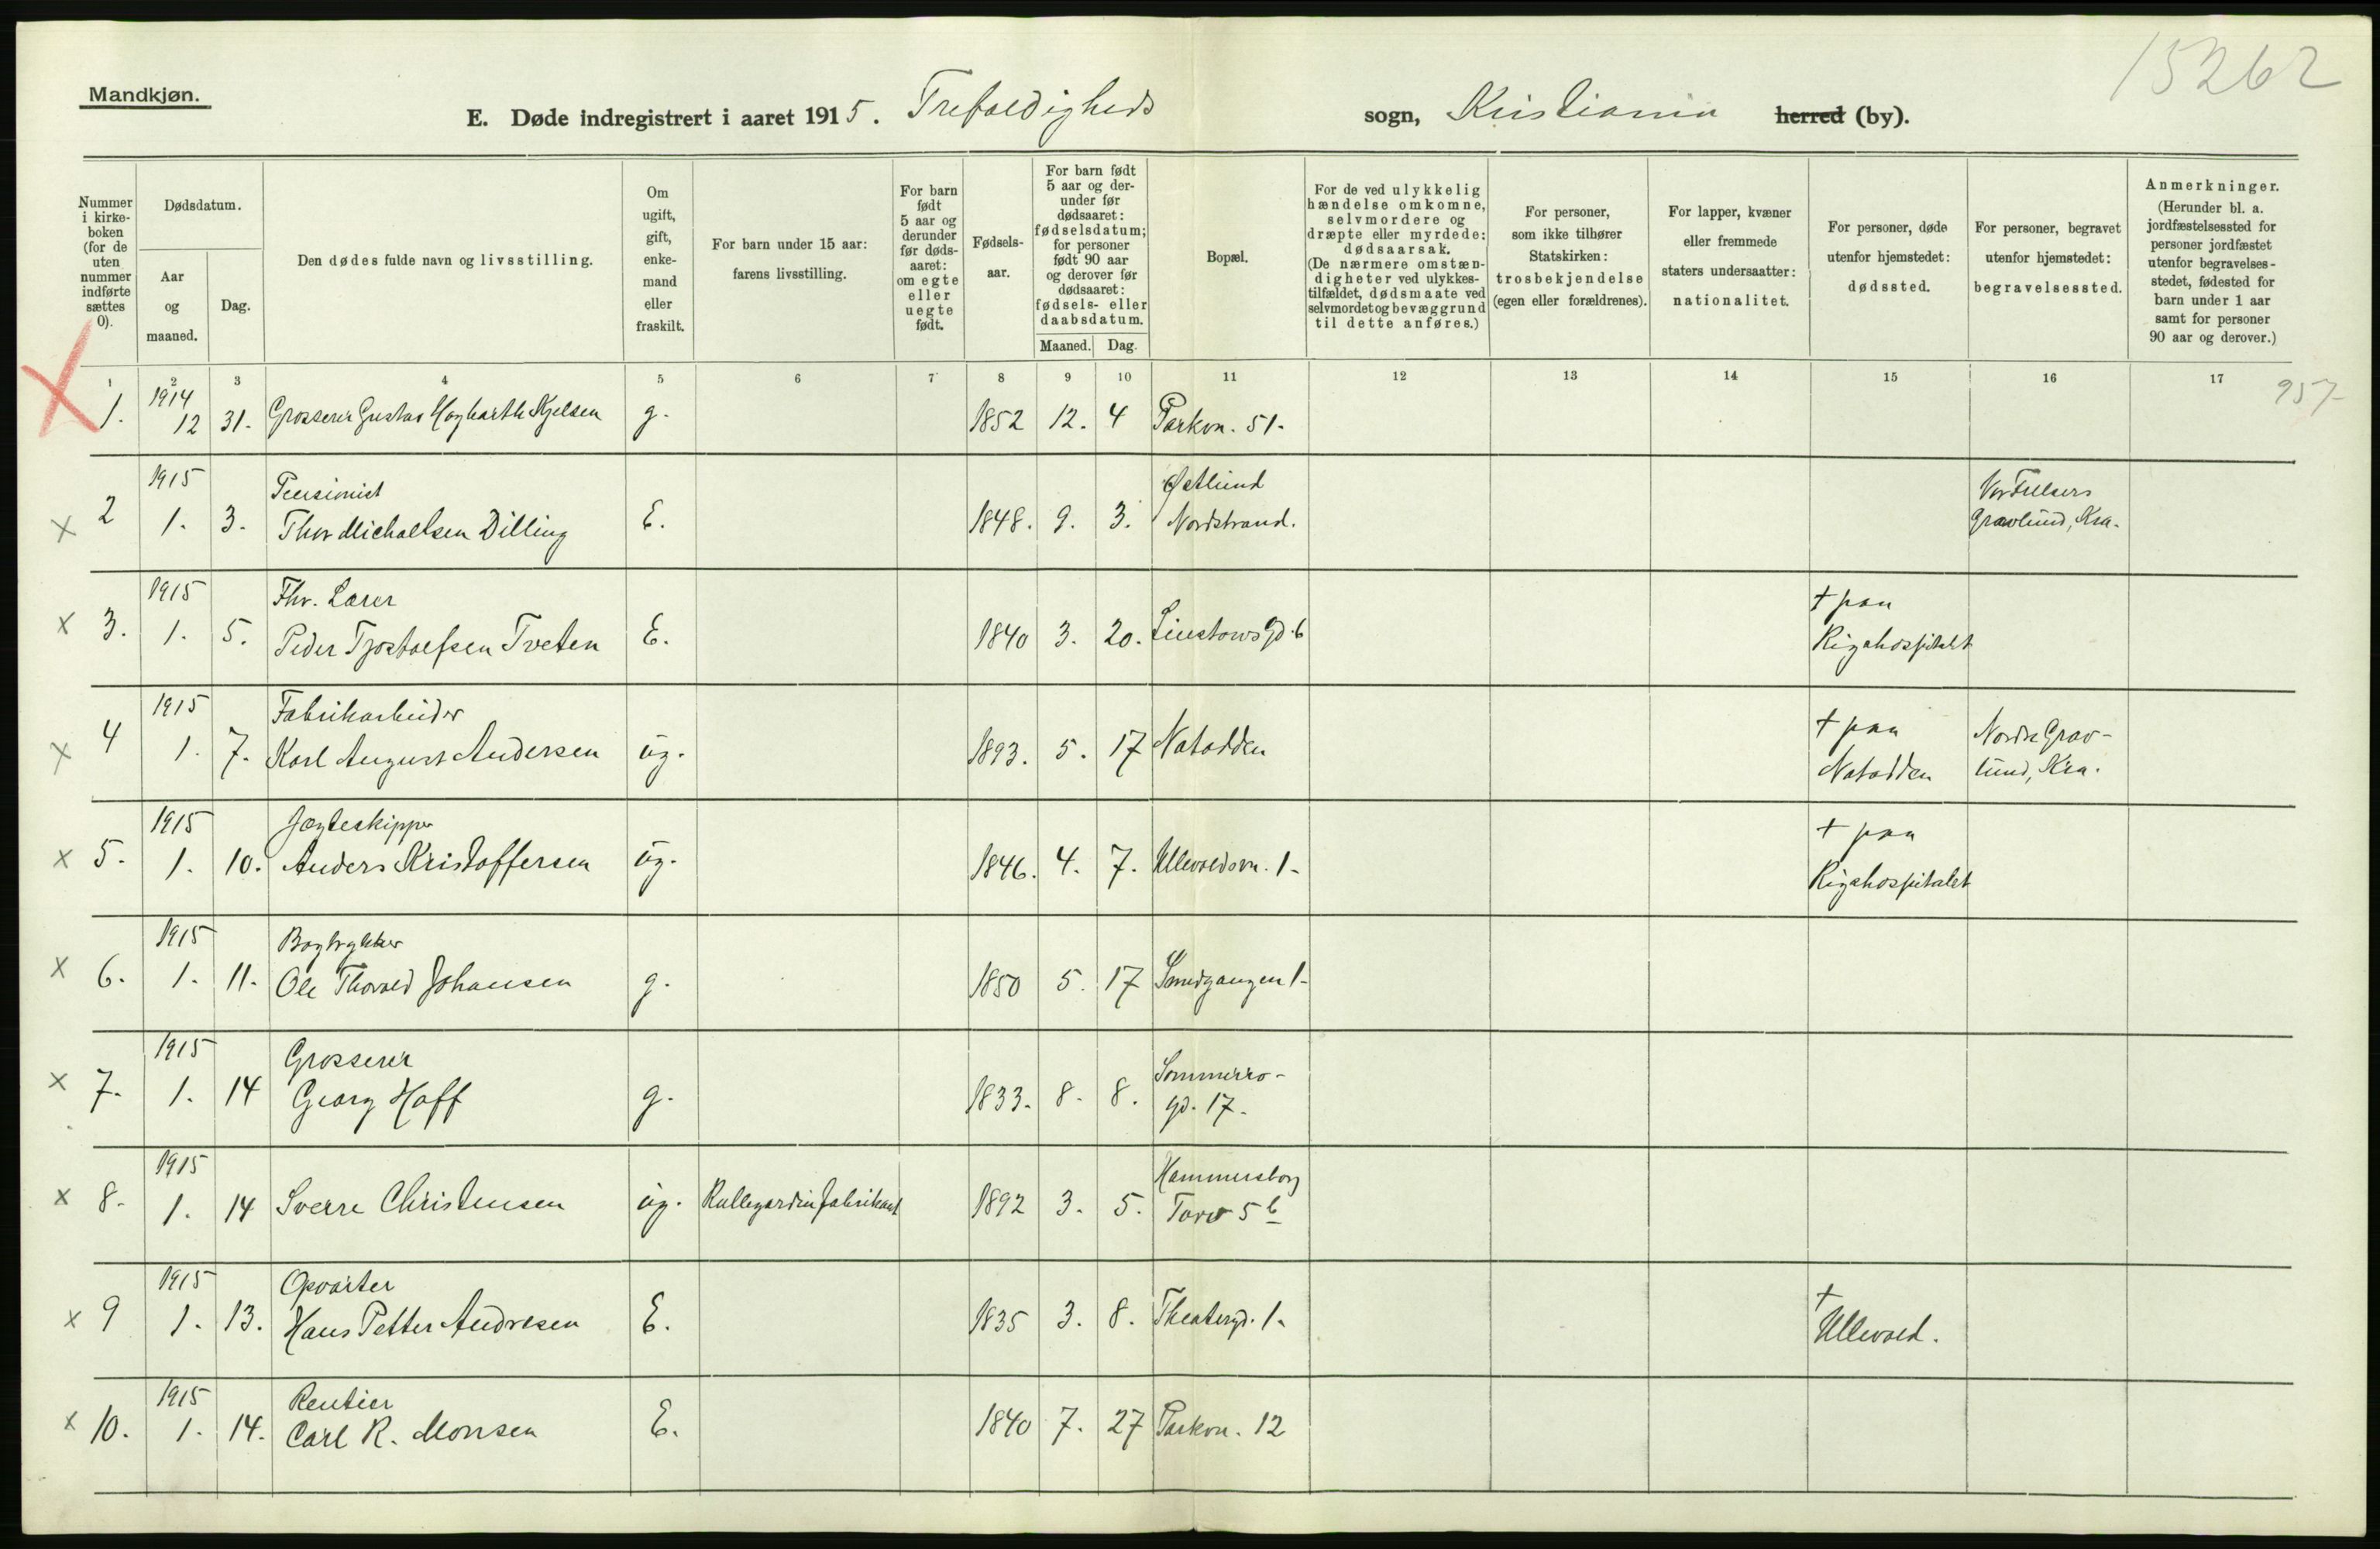 15262
Mandkjøn.
E. Døde indregistrert i aaret 1915. Trefoldigheds sogn, Kristiania herred (by).
Nummer i kirkeboken (for de uten nummer indførte sættes 0).
Dødsdatum.
Aar og maaned.
Dag.
Den dødes fulde navn og livsstilling.
Om ugift, gift, enkemand eller fraskilt.
For barn under 15 aar: farens livsstilling.
For barn født 5 aar og derunder før dødsaaret: om egte eller uegte født.
Fødselsaar.
For barn født 5 aar og derunder før dødsaaret: fødselsdatum; for personer født 90 aar og derover før dødsaaret: fødsels- eller daabsdatum.
Maaned. Dag.
Bopæl.
For de ved ulykkelig hændelse omkomne, selvmordere og dræpte eller myrdede: dødsaarsak. (De nærmere omstændigheter ved ulykkestilfældet, dødsmaate ved selvmordet og bevæggrund til dette anføres.)
For personer, som ikke tilhører Statskirken: trosbekjendelse (egen eller forældrenes).
For lapper, kvæner eller fremmede staters undersaatter: nationalitet.
For personer, døde utenfor hjemstedet: dødssted.
For personer, begravet utenfor hjemstedet: begravelsessted.
Anmerkninger. (Herunder bl. a. jordfæstelsessted for personer jordfæstet utenfor begravelsesstedet, fødested for barn under 1 aar samt for personer 90 aar og derover.)
1 2 3 4 5 6 7 8 9 10 11 12 13 14 15 16 17
957
1914
1. 12 31. Grosserer Gustav Hogbarth Kjelsen g. 1852 12. 4 Parkvn. 51.
1915 Pensionist Østlund Vor Frelsers
x 2 1. 3. Thor Michaelsen Dilling E. 1848. 9. 3. Nordstrand. Gravlund, Kra.
1915 Fhv. Lærer † paa
x 3. 1. 5. Peder Tjostolfsen Tveten E. 1840 3. 20. Linstowsgd. 6 Rigshospitalet
1915 Fabrikarbeider † paa Nordre Grav-
x 4 1. 7. Karl August Andersen ug. 1893. 5. 17 Notodden Notodden lund, Kra.
1915 Jægteskipper † paa
x 5. 1. 10. Anders Kristoffersen ug. 1846. 4. 7. Ullevoldsvn. 1. Rigshospitalet
1915 Bogtrykker
x 6. 1. 11. Ole Thorvald Johansen g. 1850 5. 17 Smedgangen 1.
1915 Grosserer Sommerro-
x 7. 1. 14 Georg Hoff g. 1833. 8. 8. gd. 17.
1915 Hammersborg
x 8. 1. 14 Sverre Christensen ug. Rullegardinfabrikant 1892 3. 5. Torv 5 b
1915 Opvarter †
x 9 1. 13. Hans Petter Andresen E. 1835 3. 8. Theatergd. 1. Ullevold.
1915 Rentier
x 10. 1. 14. Carl R. Monsen E. 1840 7. 27 Parkvn. 12